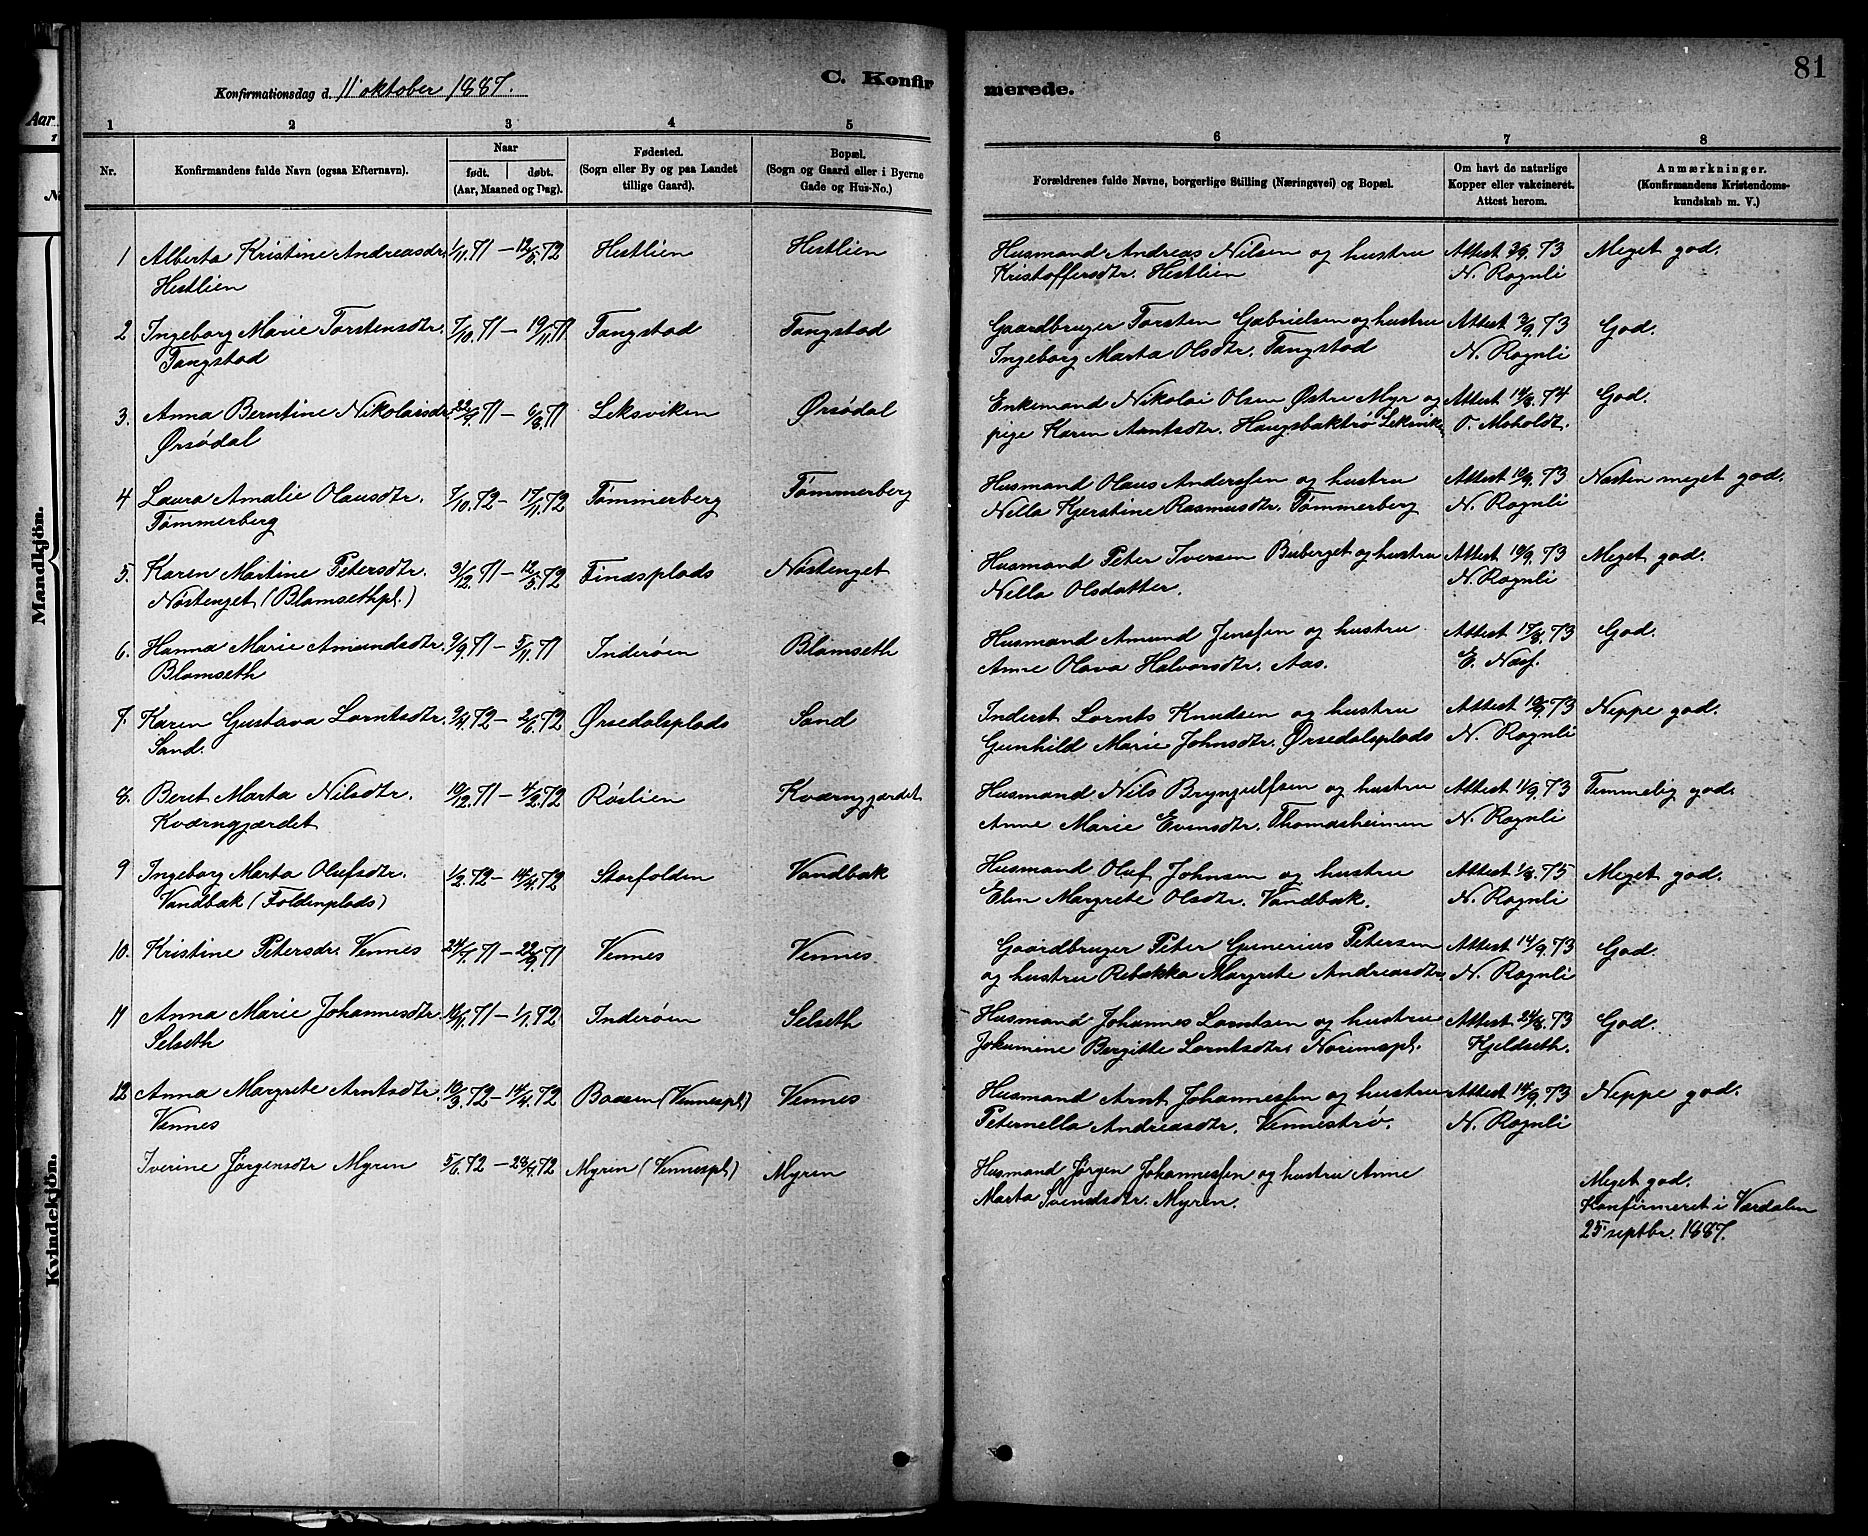 81
Konfirmationsdag d. 11 oktober 1887.
C. Konfirmerede.
Aar
Mandkjön.
Kvindekjön.
1 2 3 4 5 6 7 8
Nr.
Konfirmandens fulde Navn (ogsaa Efternavn).
Naar
født. døbt.
(Aar, Maaned og Dag).
Fødested.
(Sogn eller By og paa Landet
tillige Gaard).
Bopæl.
(Sogn og Gaard eller i Byerne
Gade og Hus-No.)
Forældrenes fulde Navne, borgerlige Stilling (Næringsvei) og Bopæl.
Om havt de naturlige
Kopper eller vakcineret.
Attest herom.
Anmærkninger.
(Konfirmandens Kristendoms-
kundskab m. V.)
1 Alberta Kristine Andreasdr. 1/11.71 – 12/5.72 Hestlien Hestlien Husmand Andreas Nilsen og hustru Attest 3/9.73 Meget god.
Hestlien Kristoffersdtr. Hestlien N. Rognli
2 Ingeborg Marie Torstensdtr. 7/10.71 – 19/11.71 Tangstad Tangstad Gaardbruger Torsten Gabrielsen og hustru Attest 3/9.73 God.
Tangstad Ingeborg Marta Olsdtr. Tangstad N. Rognli
3. Anna Berntine Nikolaisdr. 22/4.71 – 6/8.71 Leksviken Ørsødal Enkemand Nikolai Olsen Østre Myr og Attest 14/8.74 God.
Ørsødal pige Karen Arntsdtr. Haugsbaktrø Leksvik O. Moholdt.
4 Laura Amalie Olausdtr. 7/10.72 – 17/11.72 Tømmerberg Tømmerberg Husmand Olaus Anderssen og hustru Attest 10/9.73 Næsten meget god.
Tømmerberg Nella Kjerstine Rasmusdtr. Tømmerberg N. Rognli
5. Karen Martine Petersdtr. 31/12.71 – 12/5.72 Finæsplads Nøstenget Husmand Peter Iversen Buberget og hustru Attest 10/9.73 Meget god.
Nøstenget (Blamsethpl.) Nella Olsdatter. N. Rognli
6. Hanna Marie Amundsdtr. 9/9.71 – 5/11.71 Inderøen Blamseth Husmand Amund Jenssen og hustru Attest 17/8.73 God.
Blamseth Anne Olava Halvorsdtr. Aas. E. Næss.
7. Karen Gustava Lorntsdtr. 9/4.72 – 2/6.72 Ørsedalsplads Sand Inderst Lornts Knudsen og hustru Attest 10/9.73 Neppe god.
Sand. Gunhild Marie Johnsdtr. Ørsedalsplads N. Rognli
8. Beret Marta Nilsdtr. 10/12.71 – 4/2.72 Røslien Kværngjærdet Husmand Nils Bryngulfsen og hustru Attest 11/9.73 Temmelig god.
Kværngjærdet Anne Marie Evensdtr. Thomasheimen N. Rognli
9 Ingeborg Marta Olufsdtr. 1/2.72 – 14/4.72 Storfolden Vandbak Husmand Oluf Johnsen og hustru Attest 1/8.75 Meget god.
Vandbak (Foldenplads) Elen Margrete Olsdtr. Vandbak. N. Rognli
10. Kristine Petersdr. Vennes 24/7.71 – 22/9.71 Vennes Vennes Gaardbruger Peter Gunerius Petersen Attest 14/9.73 God.
og hustru Rebekka Margrete Andreasdtr. N. Rognli
11 Anna Marie Johannesdtr. 16/11.71 – 1/1.72 Inderøen Selseth Husmand Johannes Lorntsen og hustru Attest 24/8.73 God.
Selseth Jokumine Bergitte Lorntsdtr. Noremspl. Kjeldseth.
12 Anna Margrete Arntsdtr. 10/3.72 – 14/4.72 Baasen (Vennespl.) Vennes Husmand Arnt Johannessen og hustru Attest 14/9.73 Neppe god.
Vennes Peternella Andreasdtr. Vennestrø. N. Rognli
Iverine Jørgensdtr Myren 5/6.72 – 28/7.72 Myren (Vennespl.) Myren Husmand Jørgen Johannessen og hustru Anne
Marta Svendsdtr. Myren. Meget god.
Konfirmeret i Værdalen
25 septbr. 1887.